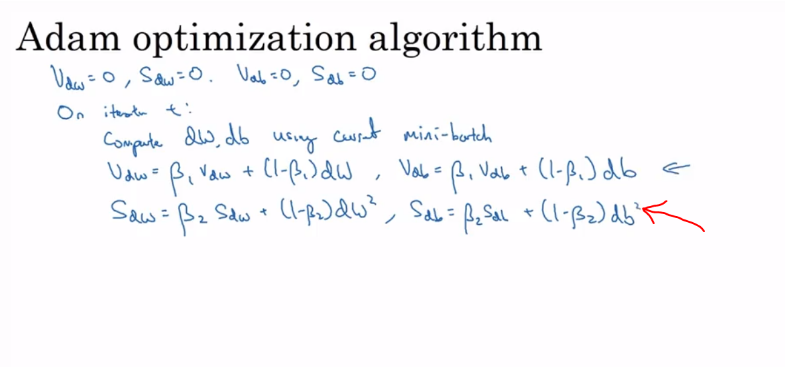 Adam optimization algorithm
V_dw = 0, S_dw = 0. V_db = 0, S_db = 0
On iteration t:
Compute dW, db using current mini-batch
V_dw = β₁ V_dw + (1-β₁) dW, V_db = β₁ V_db + (1-β₁) db ←
S_dw = β₂ S_dw + (1-β₂) dW², S_db = β₂ S_db + (1-β₂) db² ←